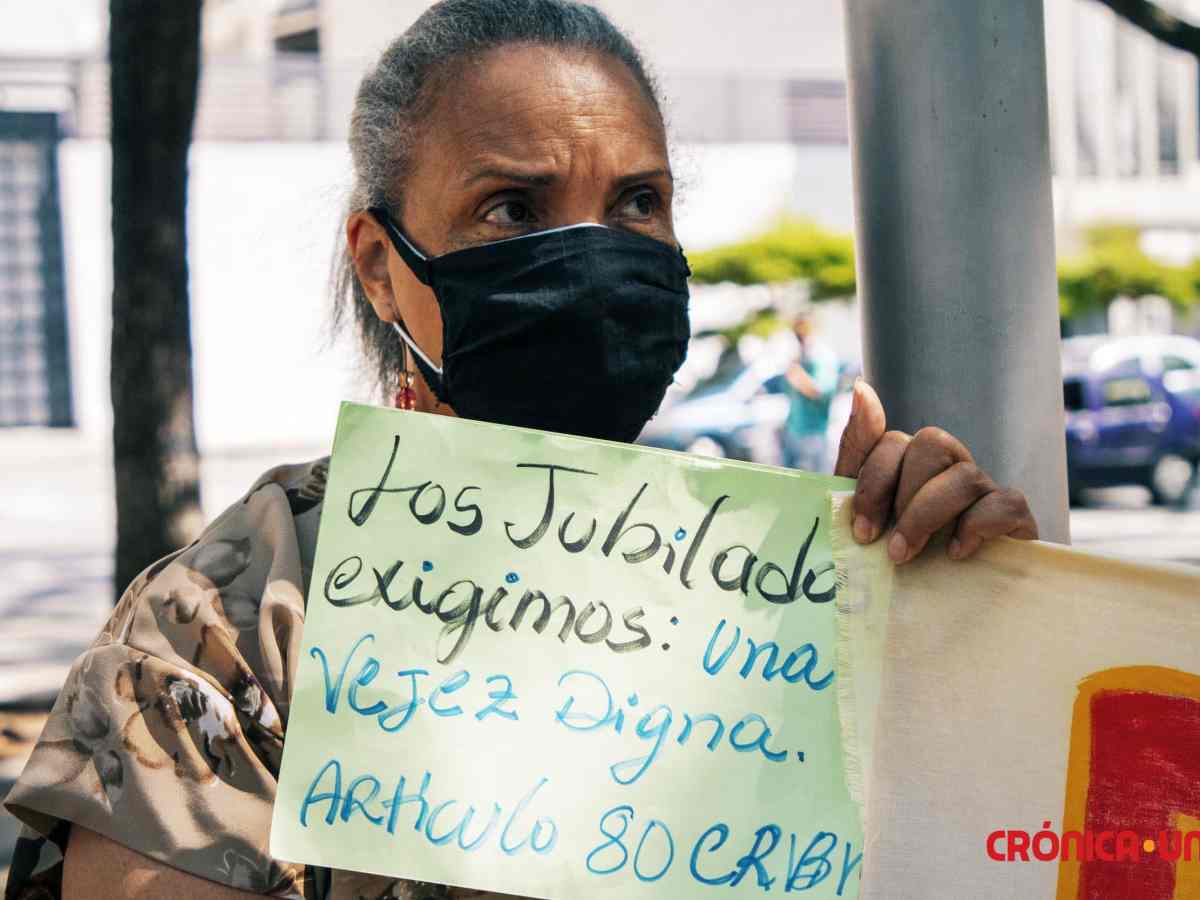 Los Jubilado
exigimos: una
Vejez Digna.
Artículo 80 CRBV
CRÓNICA·UN